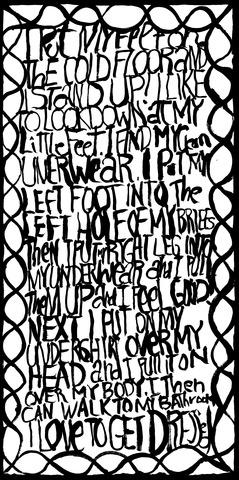 I PUT MY FEET ON
THE COLD FLOOR AND
I STAND UP. I LIKE
TO LOOK DOWN at MY
LITTLE FEET. I FIND MY clean
UNDERWEAR. I PUT MY
LEFT FOOT INTO The
LEFT HOLE OF MY BRIEFS
Then I PUT MY RIGHT LEG INTO
MY UNDERWEAR and I PULL
TheM UP and I FEEL GOOD.
NEXT I PUT ON MY
UNDERSHIRT OVER MY
HEAD and I PULL IT ON
OVER MY BODY. I Then
CAN WALK TO MY BATHROOM
I LOVE TO GET DRESSED